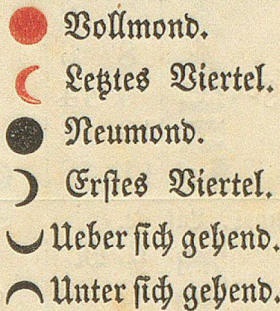 Vollmond.
Letztes Viertel.
Neumond.
Erstes Viertel.
Ueber sich gehend.
Unter sich gehend.